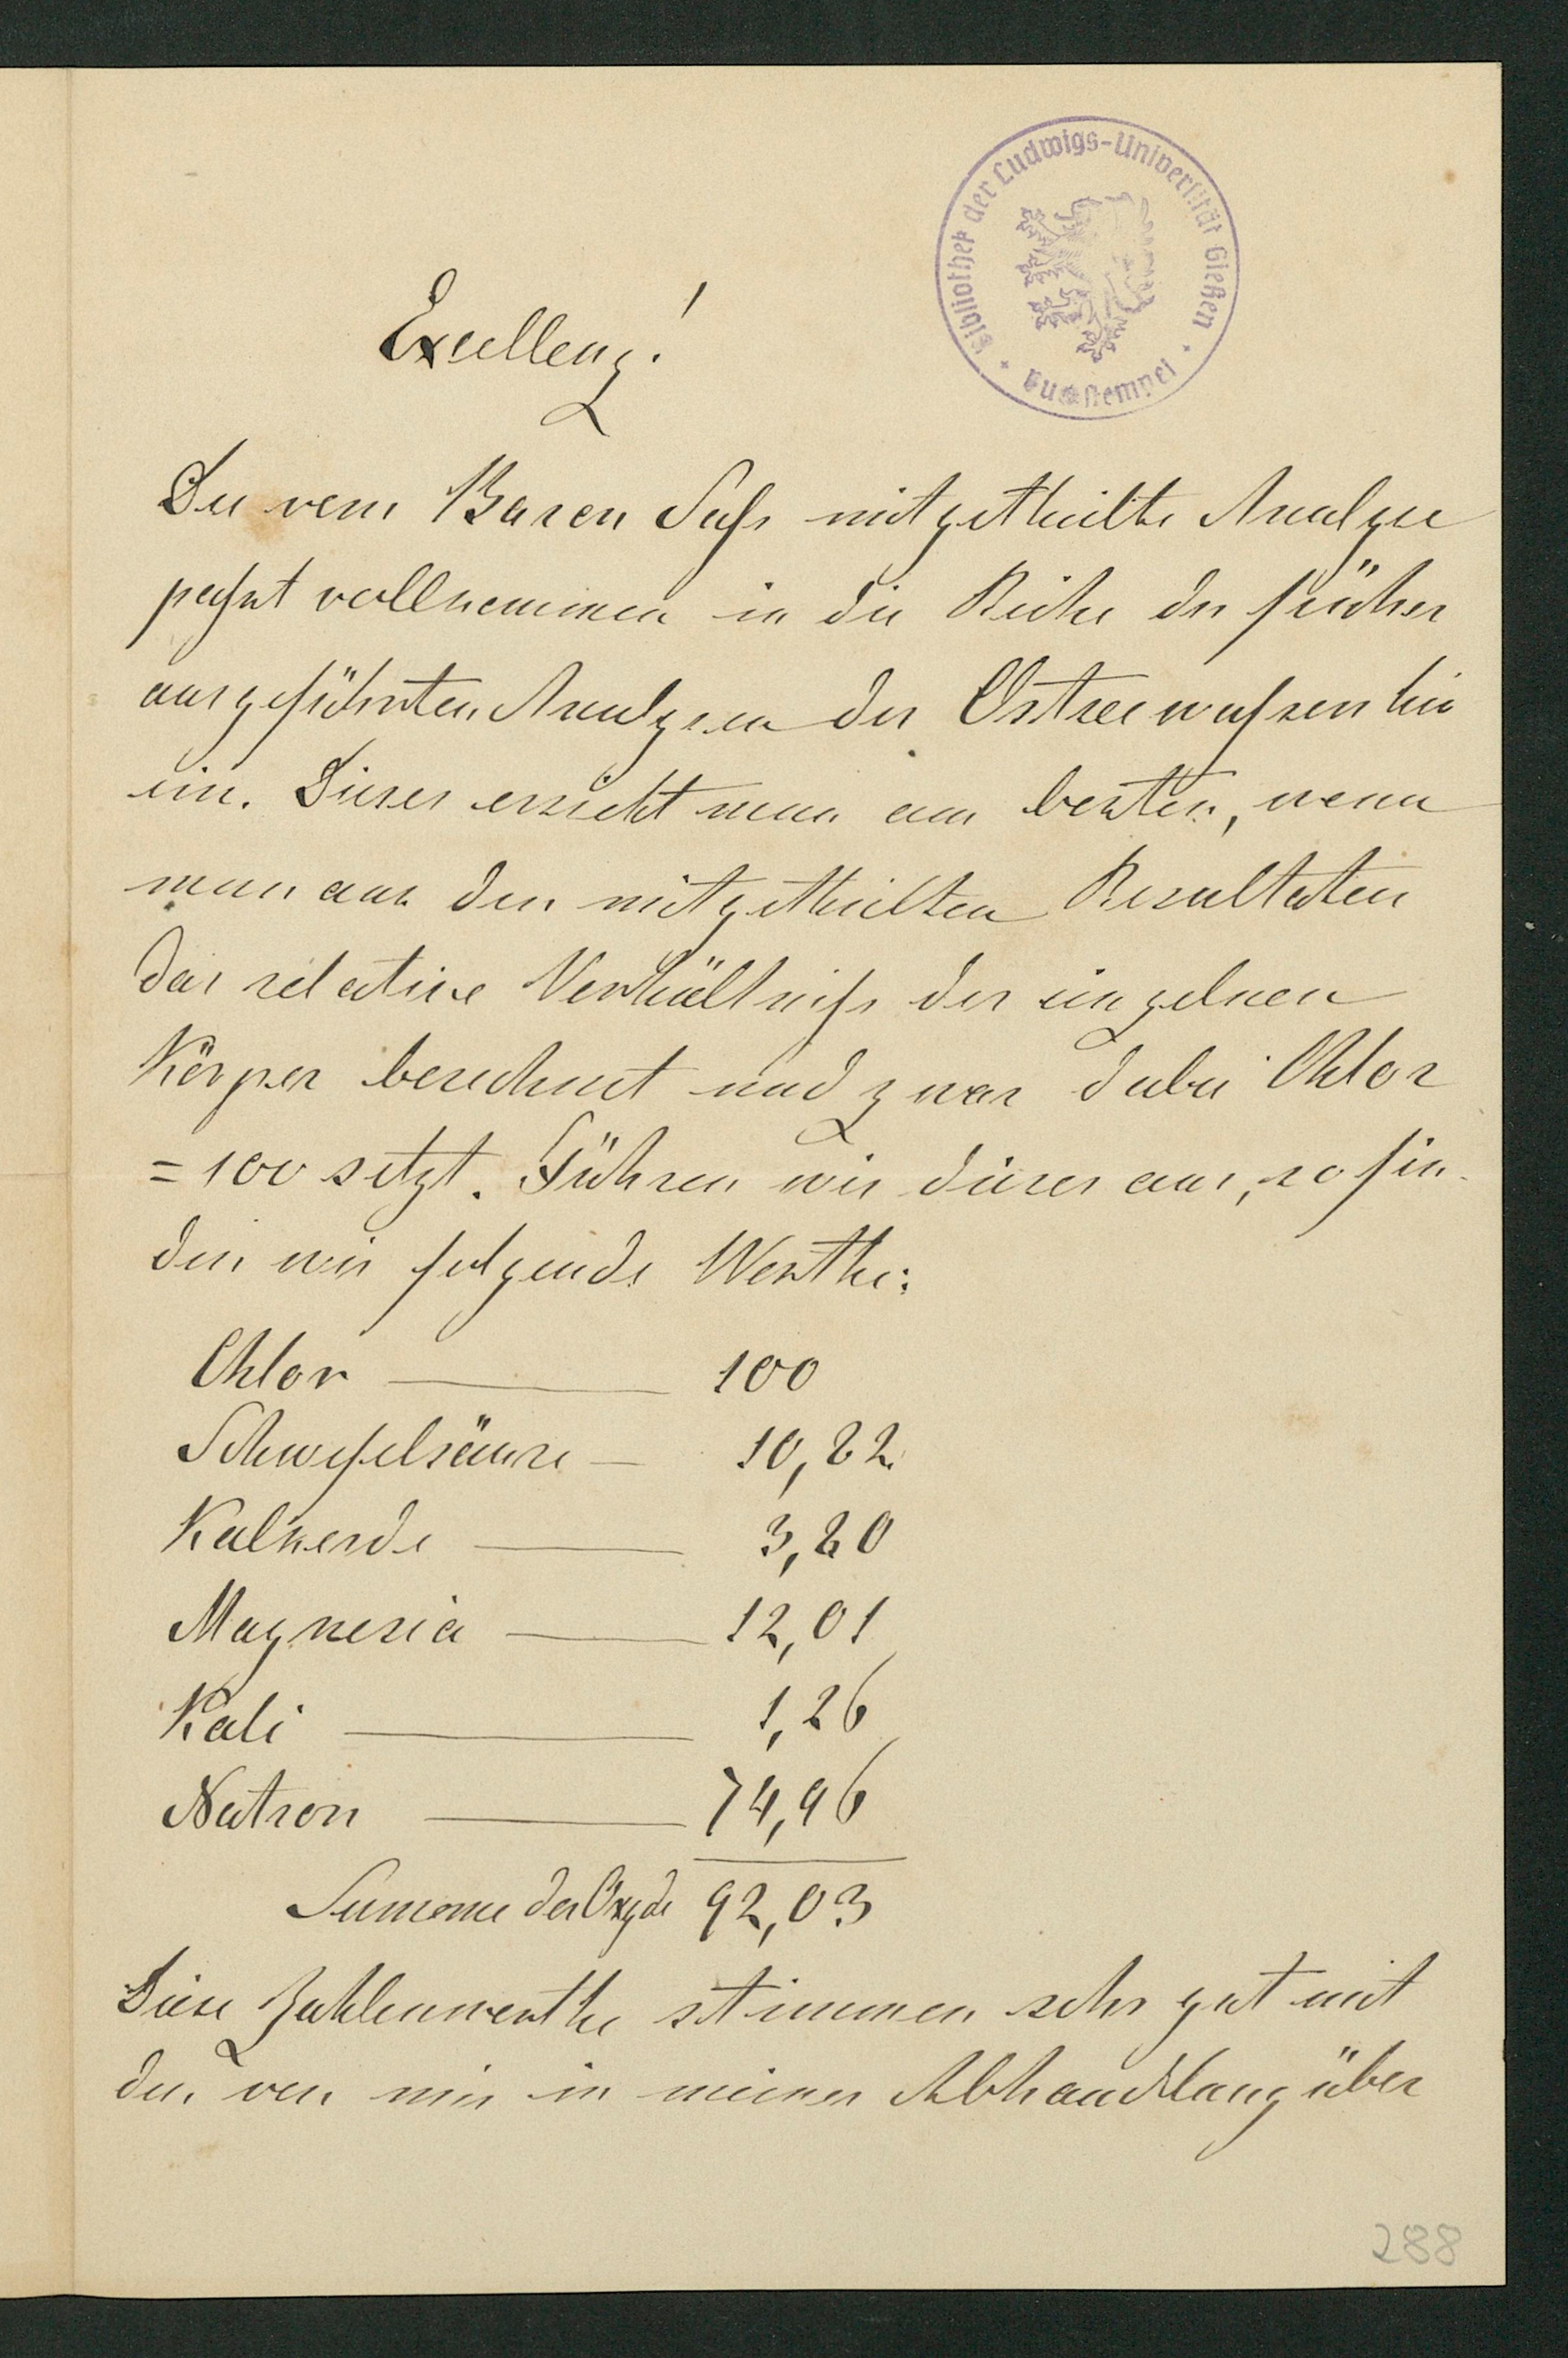 Bibliothek der Ludwigs-Universität Gießen
Buchstempel
Excellenz!
Die vom Baron Saß mitgetheilte Analyse
paßt vollkommen in die Reihe der früher
ausgeführten Analysen des Ostseewassers hin
ein. Dieses ersieht man am besten, wenn
man aus den mitgetheilten Resultaten
das relative Verhältniß der einzelnen
Körper berechnet und zwar dabei Chlor
= 100 setzt. Führen wir dieses aus, so fin-
den wir folgende Werthe:
Chlor — 100
Schwefelsäure — 10,82
Kalkerde — 3,80
Magnesia — 12,01
Kali — 1,26
Natron — 74,96
Summe der Oxyde 92,03
Diese Zahlenwerthe stimmen sehr gut mit
den von mir in meiner Abhandlung über
288